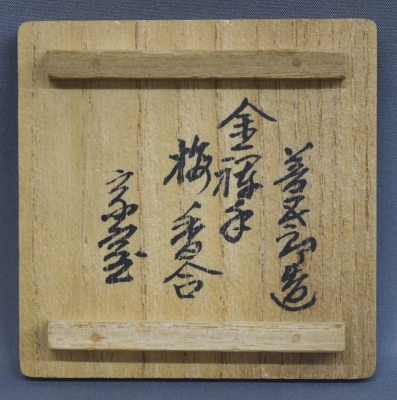 善五郎造
金襴手
梅香合